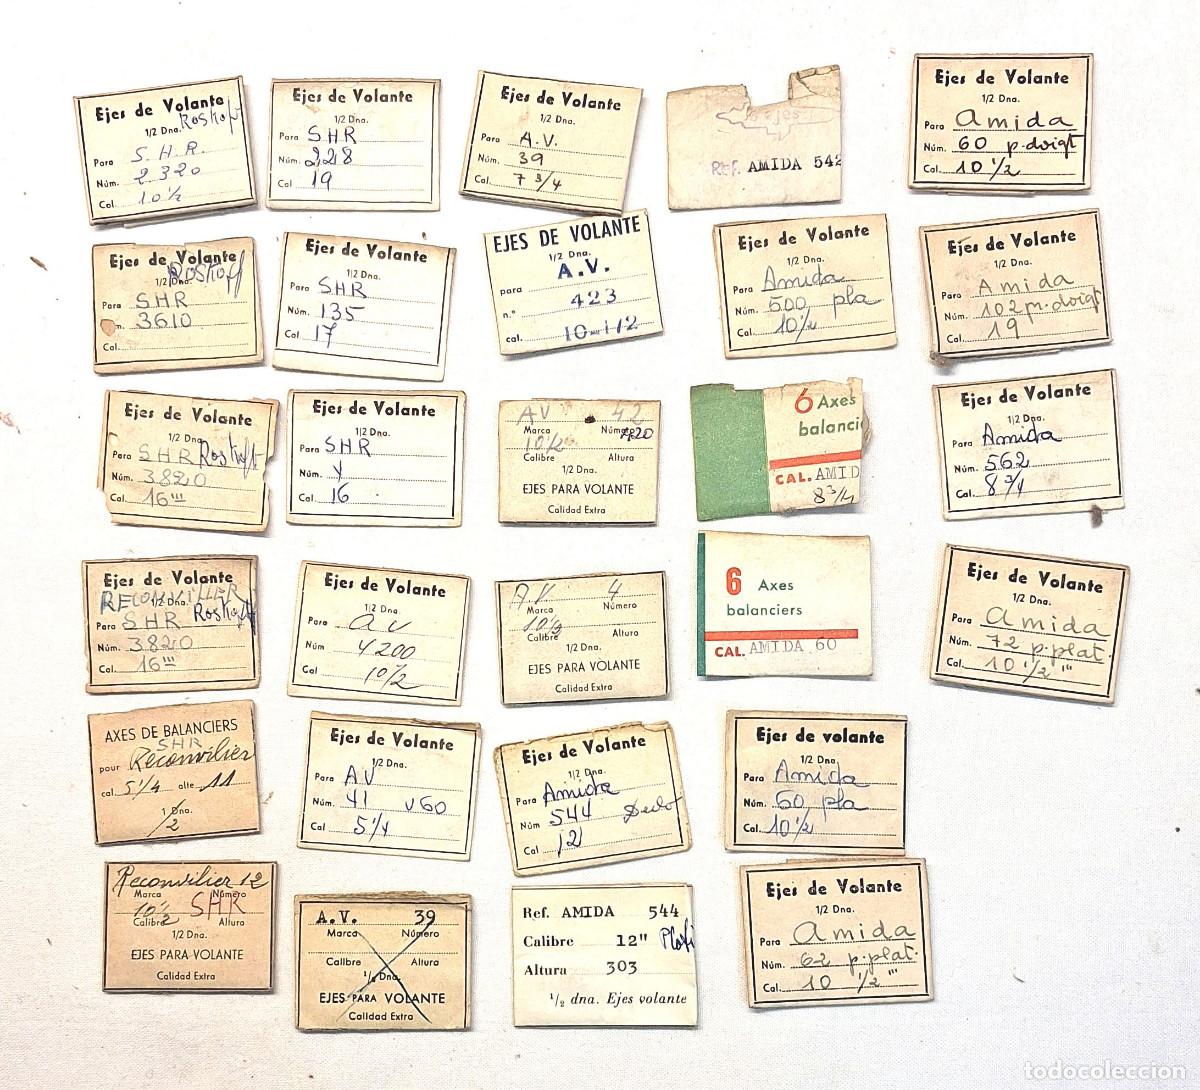 Ejes de Volante
1/2 Dna. Roskopf
Para S.H.R.
Núm. 2320
Cal. 10 ½
Ejes de Volante
1/2 Dna.
Para SHR
Núm. 228
Cal 19
Ejes de Volante
1/2 Dna.
Para A.V.
Núm. 39
Cal. 7 3/4
Ref. AMIDA 542
Ejes de Volante
1/2 Dna.
Para Amida
Núm. 60 p.doigt
Cal. 10 1/2
Ejes de Volante
1/2 Dna. Roskopf
Para SHR
Núm. 3610
Cal.
Ejes de Volante
1/2 Dna.
Para SHR
Núm. 135
Cal. 17
EJES DE VOLANTE
1/2 Dna.
para A.V.
n.° 423
cal. 10-1/2
Ejes de Volante
1/2 Dna.
Para Amida
Núm. 500 pla
Cal. 10½
Ejes de Volante
1/2 Dna.
Para Amida
Núm. 102 p.doigt
Cal. 19
Ejes de Volante
1/2 Dna.
Para SHR Roskopf
Núm. 3820
Cal. 16'''
Ejes de Volante
1/2 Dna.
Para SHR
Núm. Y
Cal. 16
AV 42
Marca Número 420
10½
Calibre Altura
1/2 Dna.
EJES PARA VOLANTE
Calidad Extra
6 Axes
balanci
CAL. AMID
8 3/4
Ejes de Volante
1/2 Dna.
Para Amida
Núm. 562
Cal. 8 3/4
Ejes de Volante
RECONVILLER
1/2 Dna.
Para SHR Roskopf
Núm. 3820
Cal. 16'''
Ejes de Volante
1/2 Dna.
Para AV
Núm 4200
Cal. 10½
A.V. 4
Marca Número
10½
Calibre Altura
1/2 Dna.
EJES PARA VOLANTE
Calidad Extra
6 Axes
balanciers
CAL. AMIDA 60
Ejes de Volante
1/2 Dna.
Para Amida
Núm. 72 p.plat.
Cal. 10 1/2'''
AXES DE BALANCIERS
SHR
pour Reconvilier
cal. 5¼ alte 11
1 Dna.
/2
Ejes de Volante
1/2 Dna.
Para AV
Núm. 41 v60
Cal 5¼
Ejes de Volante
1/2 Dna.
Para Amida
Núm 544 Dedo
Cal. 12
Ejes de volante
1/2 Dna.
Para Amida
Núm. 60, pla
Cal. 10½
Reconvilier 12
Marca Número
10½ SHR
Calibre Altura
1/2 Dna.
EJES PARA VOLANTE
Calidad Extra
A.V. 39
Marca Número
Calibre Altura
½ Dna.
EJES PARA VOLANTE
Calidad Extra
Ref. AMIDA 544
Calibre 12"
Altura 303
½ dna. Ejes volante
Ejes de Volante
1/2 Dna.
Para Amida
Núm. 62 p.plat.
Cal. 10 1/2'''
todocoleccion